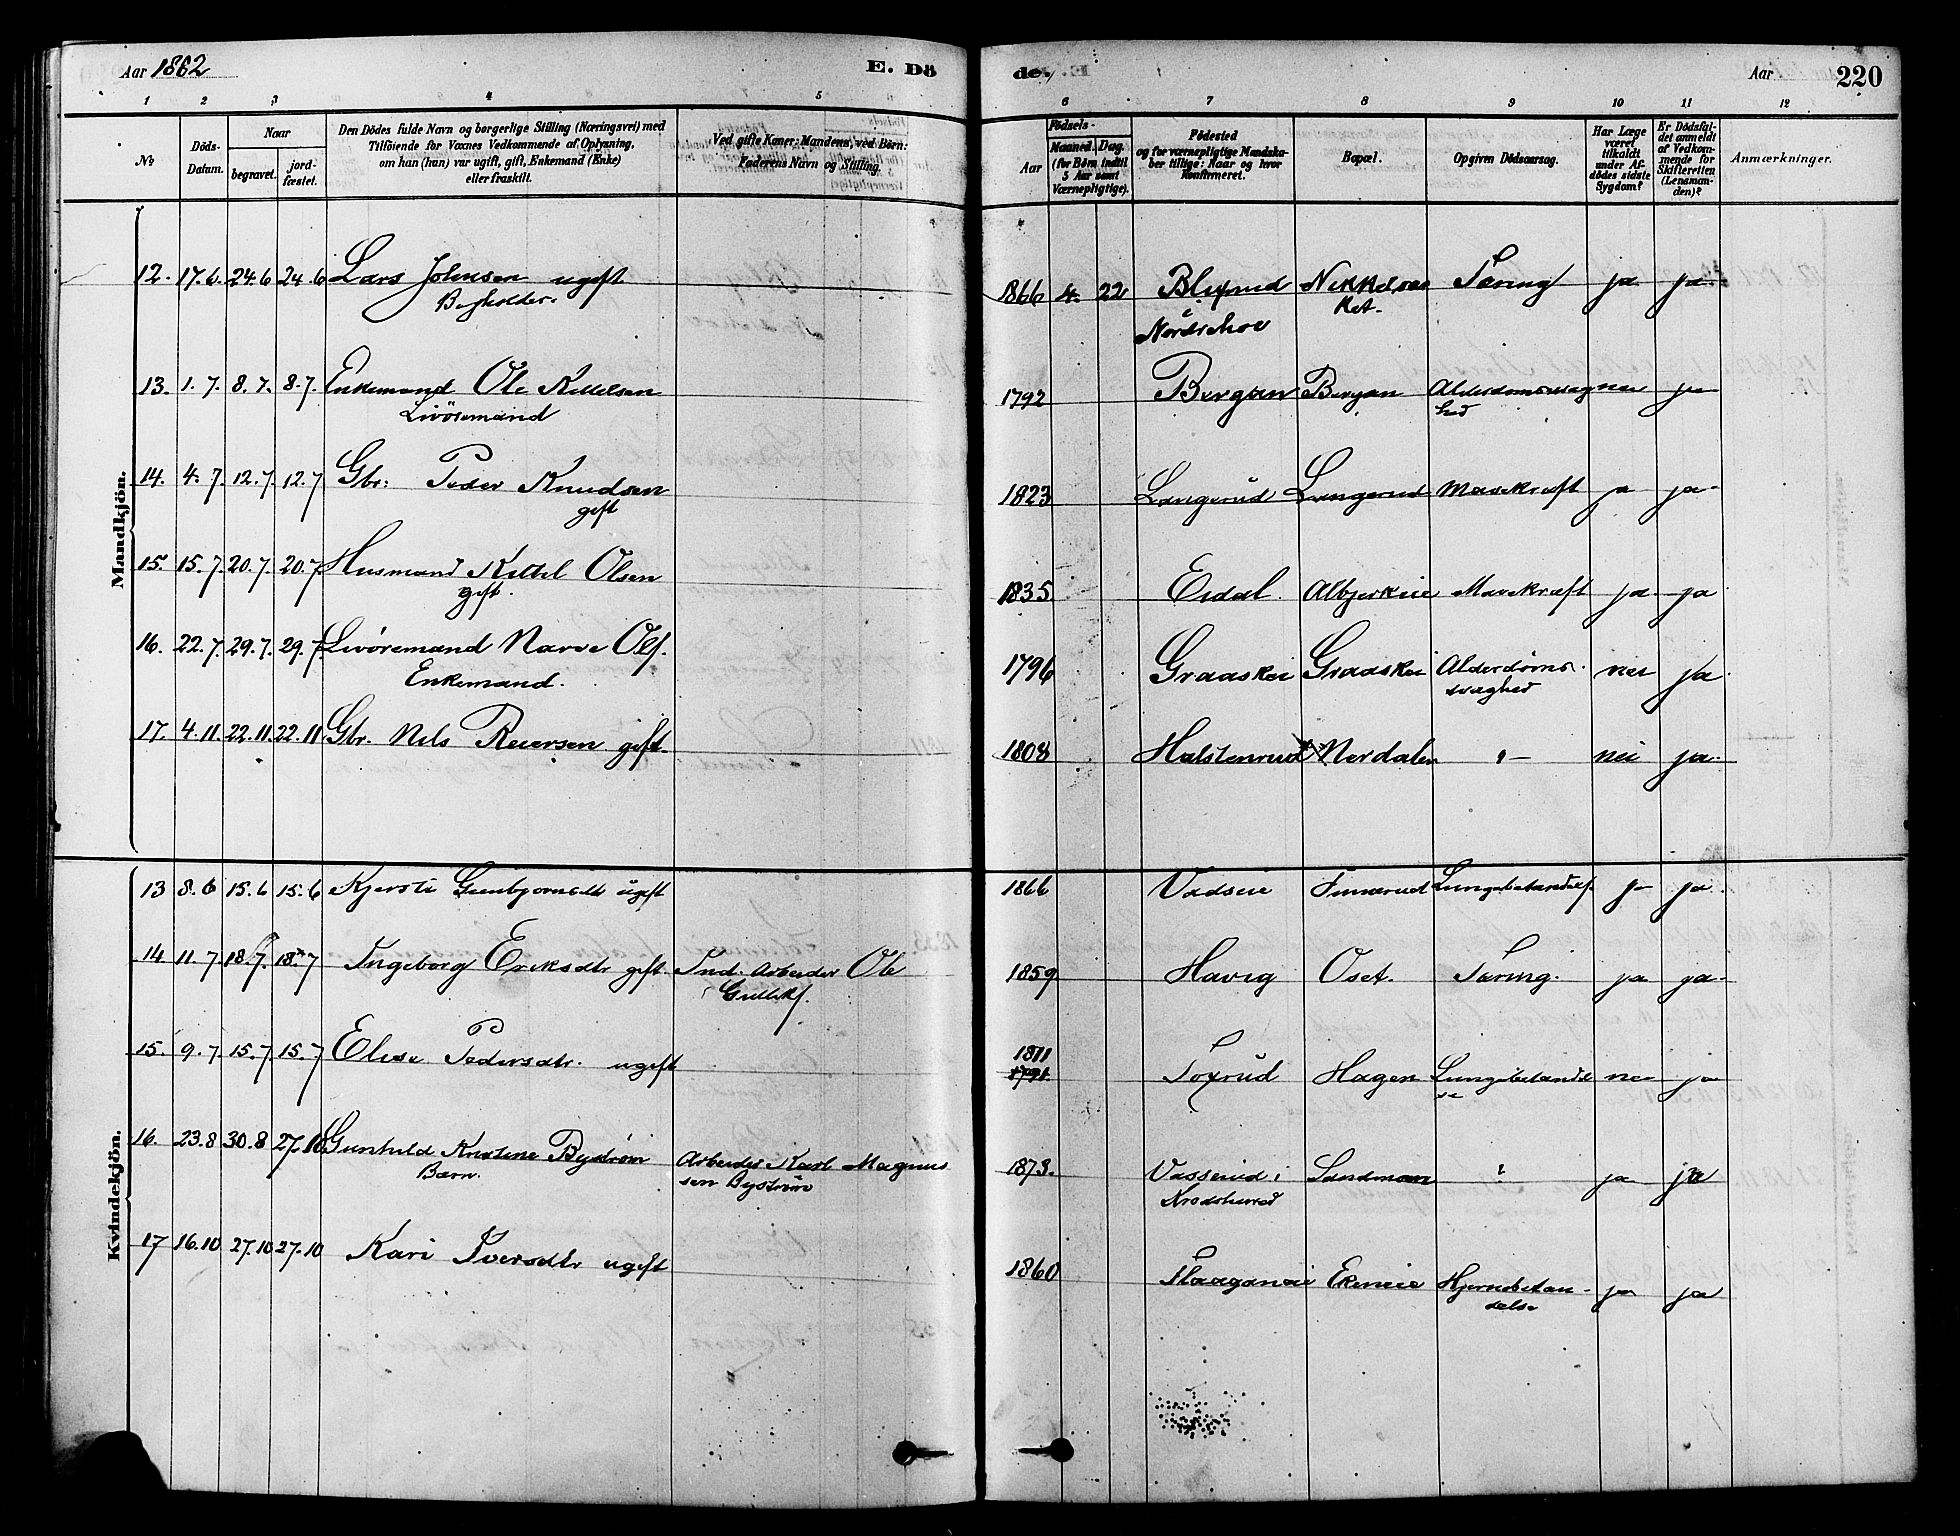 Aar 1862
E. Dö
de.
Aar
220
1 2 3 4 5
6 7 8 9 10 11 12
No
Döds-Datum.
Naar
begravet.
jordfæstet.
Den Dödes fulde Navn og borgerlige Stilling (Næringsvei) med
Tilföiende for Voxnes Vedkommende af Oplysning,
om han (hun) var ugift, gift, Enkemand (Enke)
eller fraskilt.
Ved gifte Koner: Mandens, ved Börn:
Faderens Navn og Stilling.
Födsels-
Aar
Maaned. Dag.
(for Börn indtil
5 Aar samt
Værnepligtige).
Födested
og for værnepligtige Mandska-
ber tillige: Naar og hvor
konfirmeret.
Bopæl.
Opgiven Dödsaarsag.
Har Læge
været
tilkaldt
under Af-
dödes sidste
Sygdom?
Er Dödsfal-
det anmeldt
af Vedkom-
mende for
Skifteretten
(Lensman-
den)?
Anmærkninger.
Mandkjön.
12. 17.6. 24.6 24.6 Lars Johnsen ugift 1866 4. 22 Blixrud Tæring ja ja
Nordrehov
13. 1.7. 8.7. 8.7. Enkemand Ole Kittelsen 1792 Bergan Bergan Alderdomssvag nei ja
Livöremand hed
14. 4.7 12.7. 12.7 Gbr: Peder Knudsen 1823 Langerud Langerud Mavekræft ja ja
gift
15. 15.7. 20.7. 20.7 Husmand Kittil Olsen 1835. Eidal. Albjerkeie Mavekræft ja ja
gift.
16. 22.7. 29.7. 29.7 Livöremand Narve Ols. 1796 Graaskei Graaskei Alderdoms-
Enkemand. svaghed nei ja
17. 4.11. 22.11. 22.11. Gbr. Nils Reiersen gift. 1808 Halstenrud Nordalen "— nei ja
Kvindekjön.
13 8.6 15.6 15.6 Kjersti ugift 1866 ja ja
14 11.7 18.7. 18.7 Ingeborg Eriksdtr gift Ind. Arbeider Ole 1859 Havig Oset. Tæring. ja ja
Gulliks.
15. 9.7. 15.7. 15.7 Elise Pedersdtr. ugift 1811 Hagen Lungebetændel nei ja
se
16. 23.8 30.8 27.10 Gunhild Kristine Byström Arbeider Karl Magnus 1873. i Sandmoen ? ja ja
Barn. sen Byström Krødsherred
17 16.10 27.10 27.10 Kari Iversdtr ugift 1860 Ekerneie Hjernebetæn- ja ja
delse